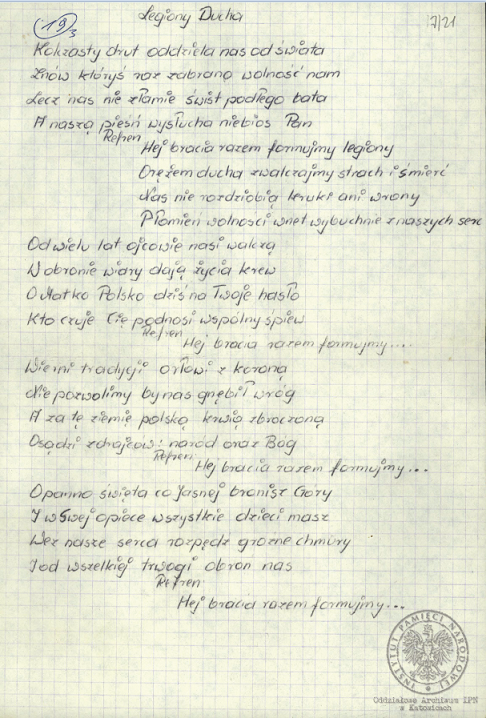 Legiony Ducha
19/3
7/21
Kolczasty drut oddziela nas od świata
Znów któryś raz zabrano wolność nam
Lecz nas nie złamie świst podłego bata
A naszą pieśń wysłucha niebios Pan
Refren
Hej bracia razem formujmy legiony
Orężem ducha zwalczajmy strach i śmierć
Nas nie rozdziobią kruki ani wrony
Płomień wolności wnet wybuchnie z naszych serc
Od wielu lat ojcowie nasi walczą
W obronie wiary dają życia krew
O Matko Polsko dziś na Twoje hasło
Kto czuje Cię podnosi wspólny śpiew
Refren
Hej bracia razem formujmy....
Wierni tradycji orłowi z koroną
Nie pozwolimy by nas gnębił wróg
A za tę ziemię polską krwią zbroczoną
Osądzi zdrajców: naród oraz Bóg
Refren
Hej bracia razem formujmy...
O panno święta co Jasnej bronisz Góry
I w Swej opiece wszystkie dzieci masz
Weź nasze serca rozpędź groźne chmury
I od wszelkiej trwogi obroń nas
Refren
Hej bracia razem formujmy...
INSTYTUT PAMIĘCI NARODOWEJ
Oddziałowe Archiwum IPN
w Katowicach